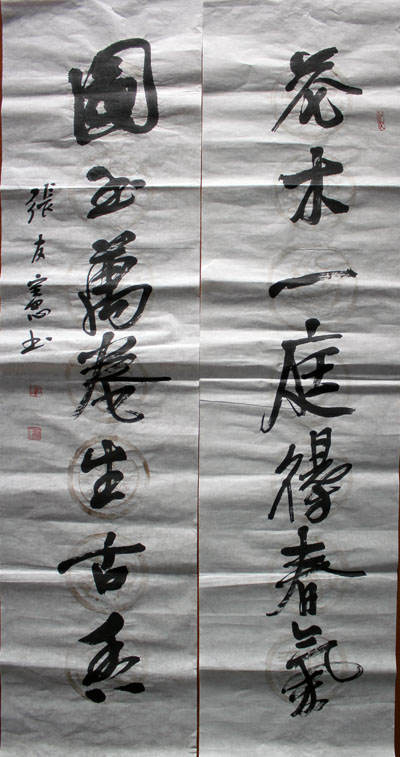 花木一庭得春氣
圖书萬卷生古香
張友憲书